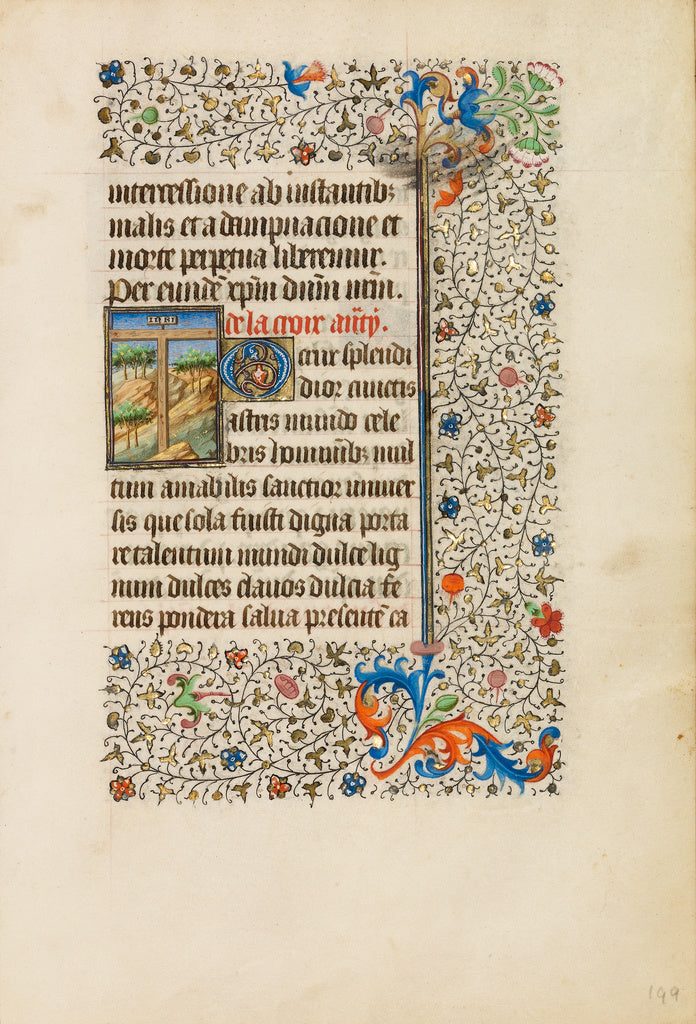 intercessione ab instantib₃
malis et a dampnacione et
morte perpetua liberemur.
Per eundē xp̄m dūm nr̄m.
de la croix añt̄y.
INRI
O crux splendi
dior cunctis
astris mundo cele
bris hominib₃ mul
tum amabilis sanctior univer
sis que sola fuisti digna porta
re talentum mundi dulce lig
num dulces clavos dulcia fe
rens pondera salva presentē ca
199